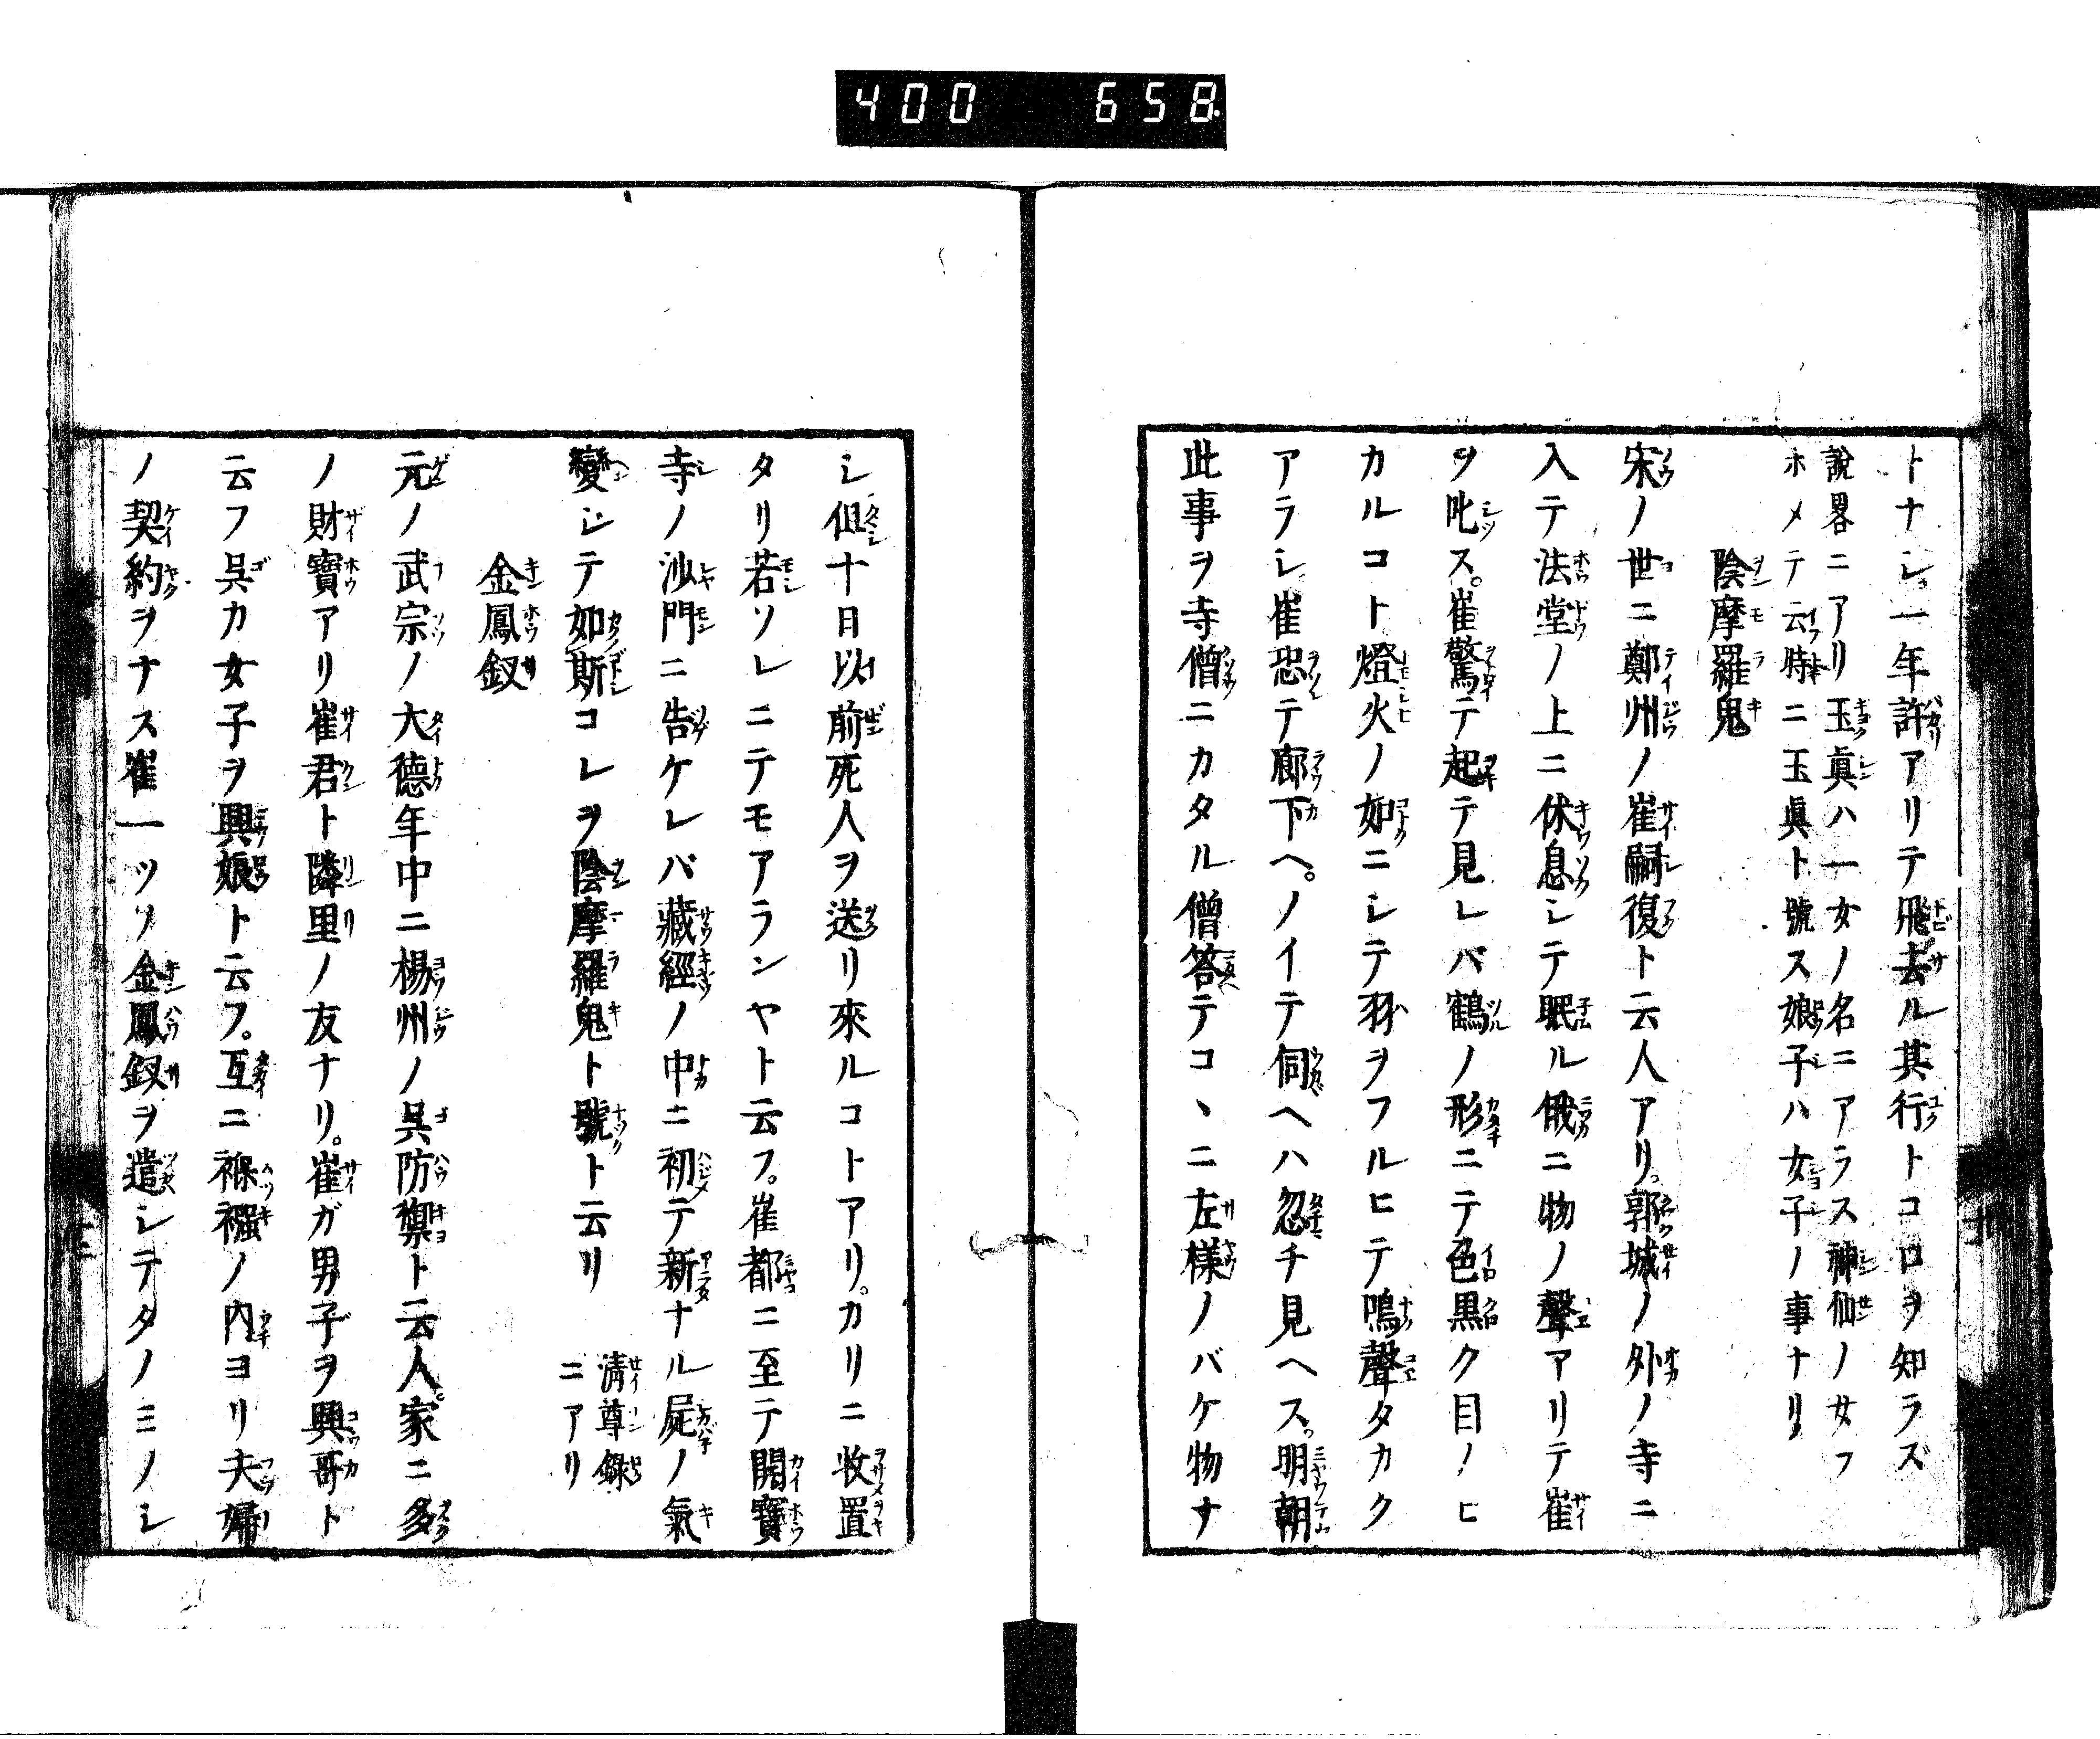 400 658
トナシ一年許アリテ飛去ル其行トコロヲ知ラズ
說畧ニアリ玉眞ハ一女ノ名ニアラス神仙ノ女ヲ
ホメテ云時ニ玉眞ト號ス娘子ハ女子ノ事ナリ
陰摩羅鬼
宋ノ世ニ鄭州ノ崔嗣復ト云人アリ。郭城ノ外ノ寺ニ
入テ法堂ノ上ニ休息シテ眠ル俄ニ物ノ聲アリテ崔
ヲ叱ス。崔驚テ起テ見レバ鶴ノ形ニテ色黒ク目ノヒ
カルコト燈火ノ如ニシテ羽ヲフルヒテ鳴聲タカク
アラシ崔恐テ廊下ヘ。ノイテ伺ヘハ忽チ見ヘス。明朝
此事ヲ寺僧ニカタル僧答テコヽニ左樣ノバケ物ナ
シ但十日以前死人ヲ送リ來ルコトアリ。カリニ收置
タリ若ソレニテモアランヤト云フ。崔都ニ至テ開寶
寺ノ沙門ニ告ケレバ藏經ノ中ニ初テ新ナル屍ノ氣
變シテ如斯コレヲ陰摩羅鬼ト號ト云リ 淸尊錄ニアリ
金鳳釵
元ノ武宗ノ大德年中ニ楊州ノ呉防禦ト云人。家ニ多
ノ財寶アリ崔君ト隣里ノ友ナリ。崔ガ男子ヲ興哥ト
云フ呉カ女子ヲ興娘ト云フ。互ニ褓襁ノ內ヨリ夫婦
ノ契約ヲナス崔一ツノ金鳳釵ヲ遣シテタノミノシ